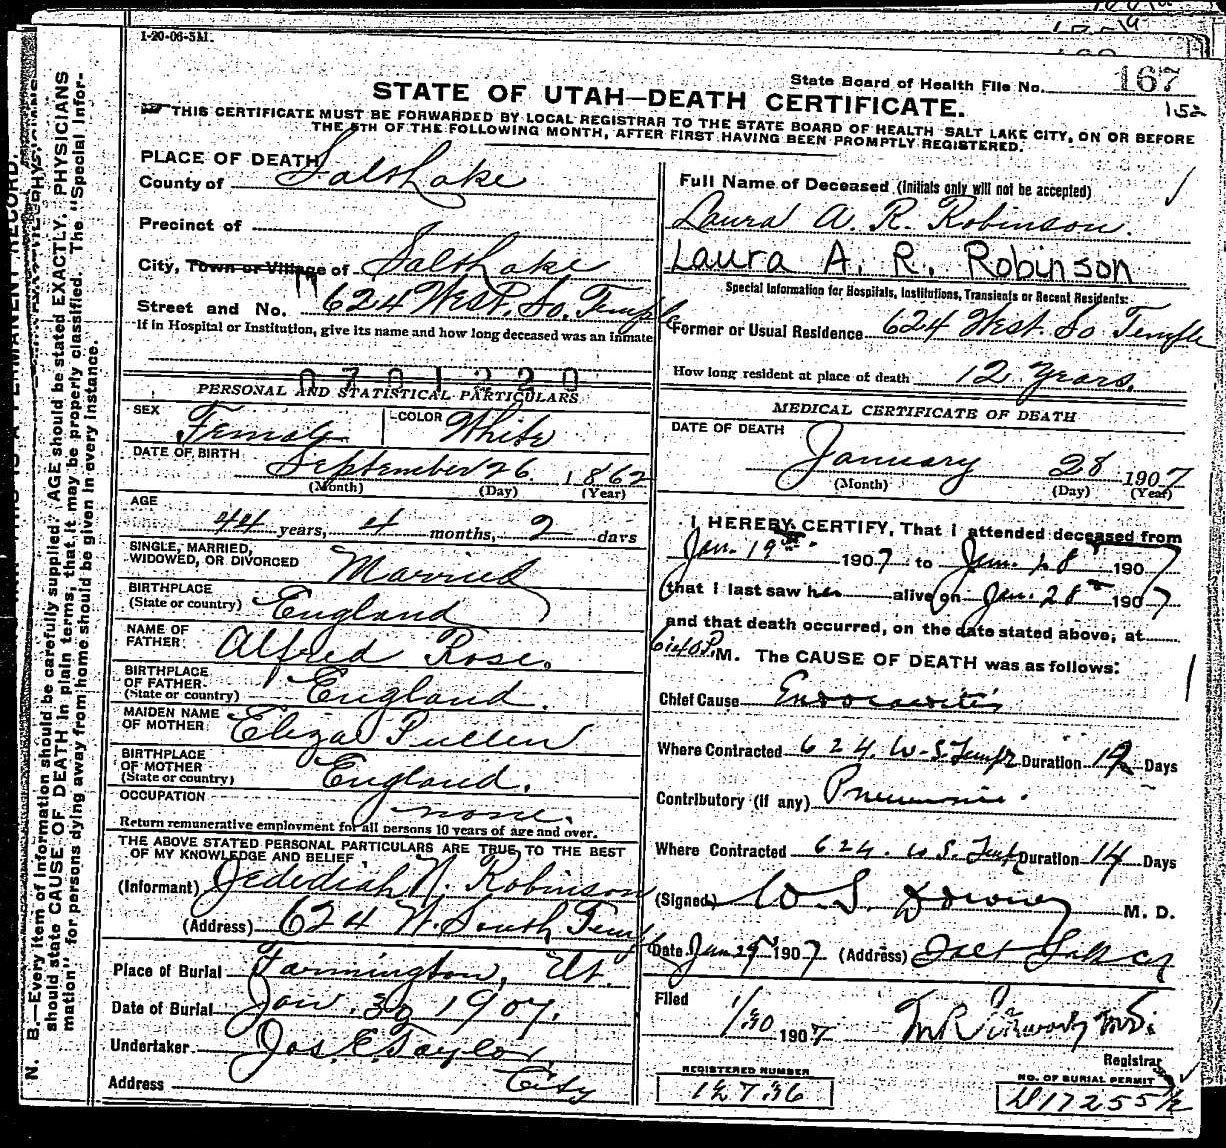 1-20-06-5M.
State Board of Health File No. 167
152
STATE OF UTAH—DEATH CERTIFICATE.
THIS CERTIFICATE MUST BE FORWARDED BY LOCAL REGISTRAR TO THE STATE BOARD OF HEALTH SALT LAKE CITY, ON OR BEFORE
THE 5TH OF THE FOLLOWING MONTH, AFTER FIRST HAVING BEEN PROMPTLY REGISTERED.
PLACE OF DEATH
County of Salt Lake
Precinct of
City, Town or Village of Salt Lake
Street and No. 624 West. So. Temple
If in Hospital or Institution, give its name and how long deceased was an inmate
0701220
PERSONAL AND STATISTICAL PARTICULARS
SEX Female COLOR White
DATE OF BIRTH September 26 1862
(Month) (Day) (Year)
AGE
44 years, 4 months, 2 days
SINGLE, MARRIED,
WIDOWED, OR DIVORCED Married
BIRTHPLACE
(State or country) England
NAME OF
FATHER Alfred Rose.
BIRTHPLACE
OF FATHER
(State or country) England.
MAIDEN NAME
OF MOTHER Eliza Pullen
BIRTHPLACE
OF MOTHER
(State or country) England.
OCCUPATION none.
Return remunerative employment for all persons 10 years of age and over.
THE ABOVE STATED PERSONAL PARTICULARS ARE TRUE TO THE BEST
OF MY KNOWLEDGE AND BELIEF
(Informant) Jedediah N. Robinson
(Address) 624 W. South Temple
Place of Burial Farmington, Ut.
Date of Burial Jan. 30 1907.
Undertaker Jos. E. Taylor
Address City
Full Name of Deceased (Initials only will not be accepted)
Laura A. R. Robinson.
Laura A. R. Robinson
Special Information for Hospitals, Institutions, Transients or Recent Residents:
Former or Usual Residence 624 West So Temple
How long resident at place of death 12 Years.
MEDICAL CERTIFICATE OF DEATH
DATE OF DEATH
January 28 1907
(Month) (Day) (Year)
I HEREBY CERTIFY, That I attended deceased from
Jan. 19th 1907 to Jan. 28 1907
that I last saw her alive on Jan. 28th 1907
and that death occurred, on the date stated above, at
6:40 P. M. The CAUSE OF DEATH was as follows:
Chief Cause Endocarditis
Where Contracted 624. W-S. Temple Duration 12 Days
Contributory (if any) Pneumonia.
Where Contracted 624. W S. Temple Duration 14 Days
(Signed) W. S. Downey M. D.
Date Jan 29 1907 (Address) Salt Lake City
Filed 1/30 1907
Registrar
REGISTERED NUMBER
12736
NO. OF BURIAL PERMIT
D17255
N. B.—Every item of information should be carefully supplied. AGE should be stated EXACTLY. PHYSICIANS
should state CAUSE OF DEATH in plain terms, that it may be properly classified. The "Special Infor-
mation" for persons dying away from home should be given in every instance.